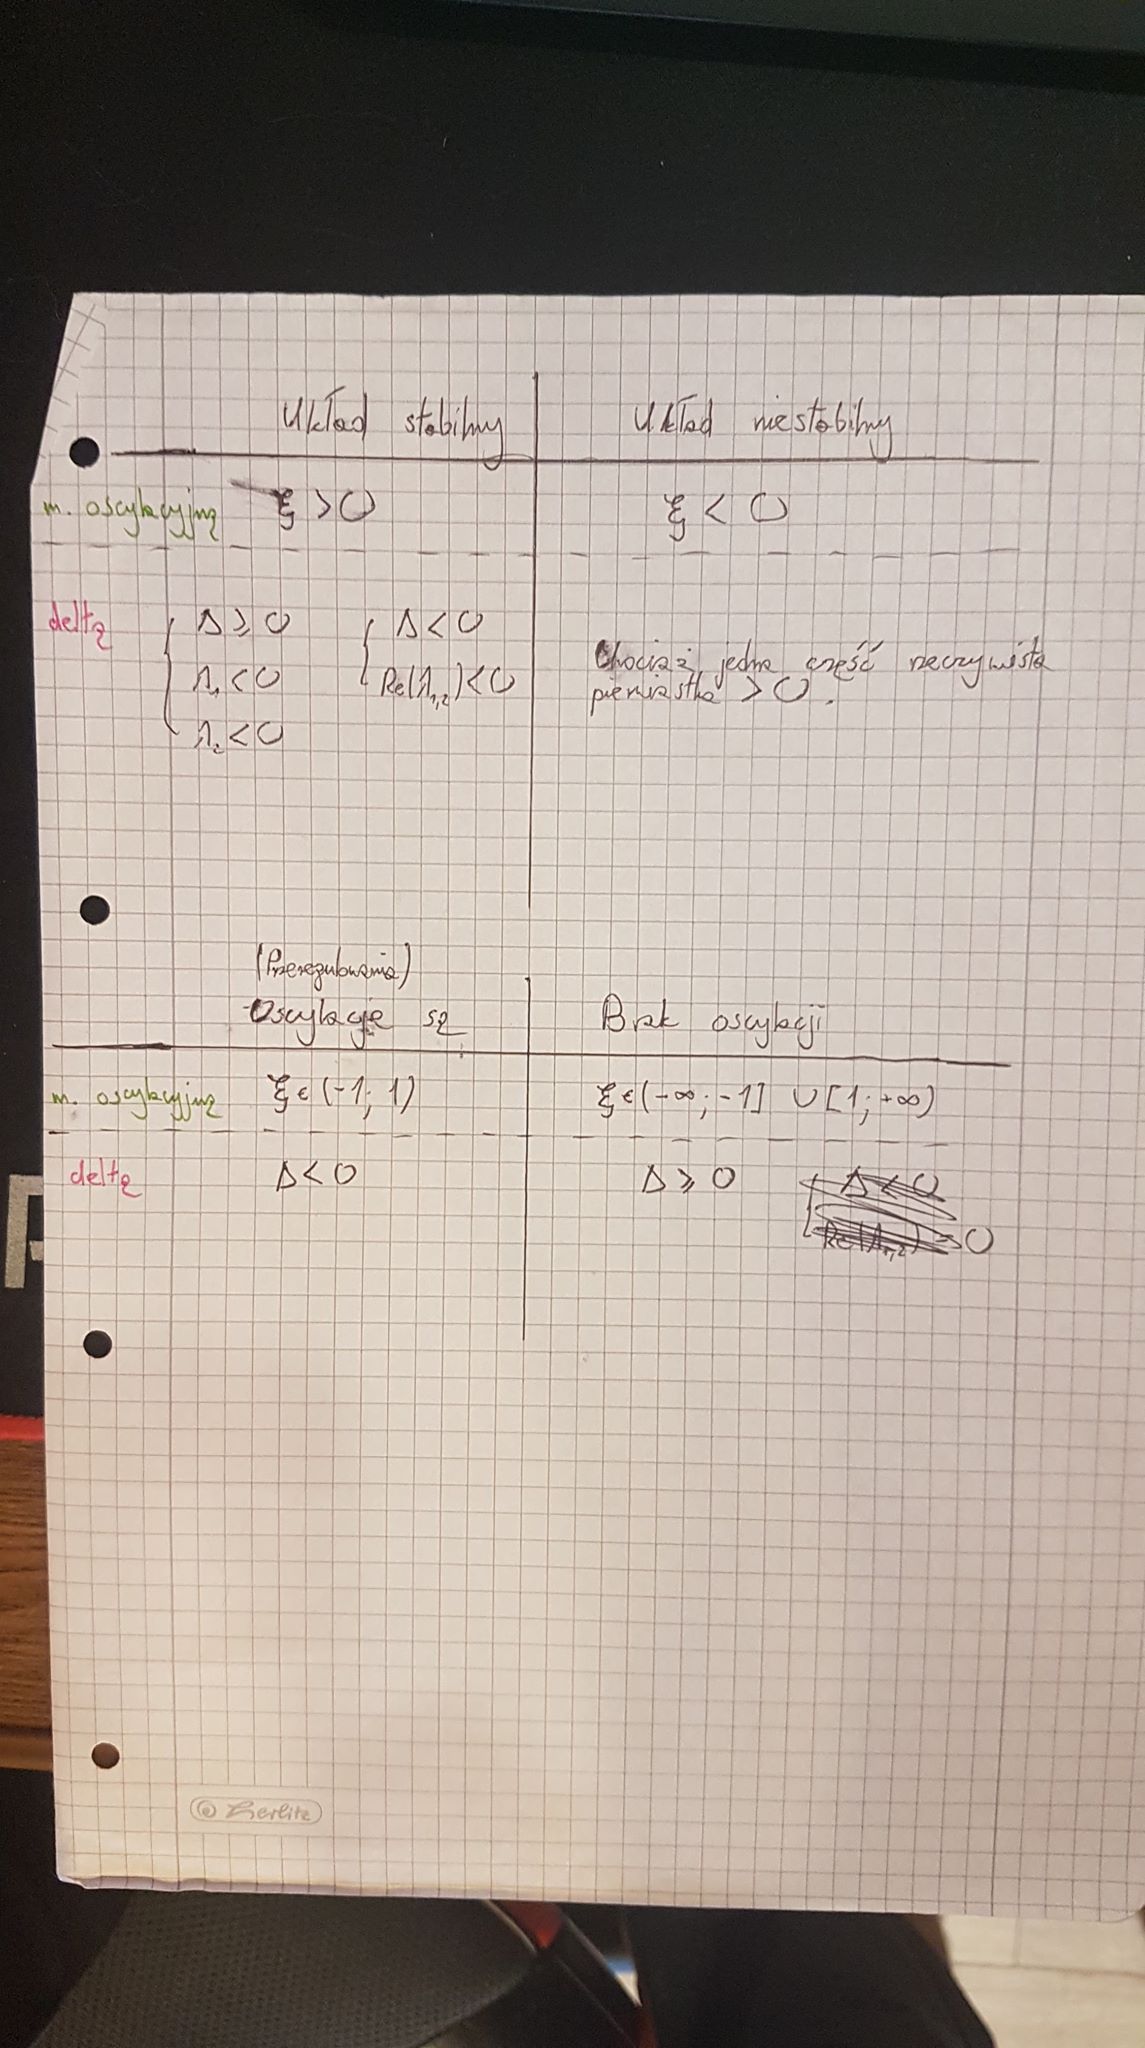 Układ stabilny Układ niestabilny
m. oscylacyjną ξ > 0 ξ < 0
deltą Δ ≥ 0 Δ < 0
Chociaż jedna część rzeczywista
λ₁ < 0 Re(λ₁,₂) < 0 pierwiastka > 0.
λ₂ < 0
(Przeregulowania)
Oscylacje są Brak oscylacji
m. oscylacyjną ξ ∈ (-1; 1) ξ ∈ (-∞; -1] ∪ [1; +∞)
deltą Δ < 0 Δ ≥ 0 Δ < 0
Re(λ₁,₂) = 0
© Herlitz